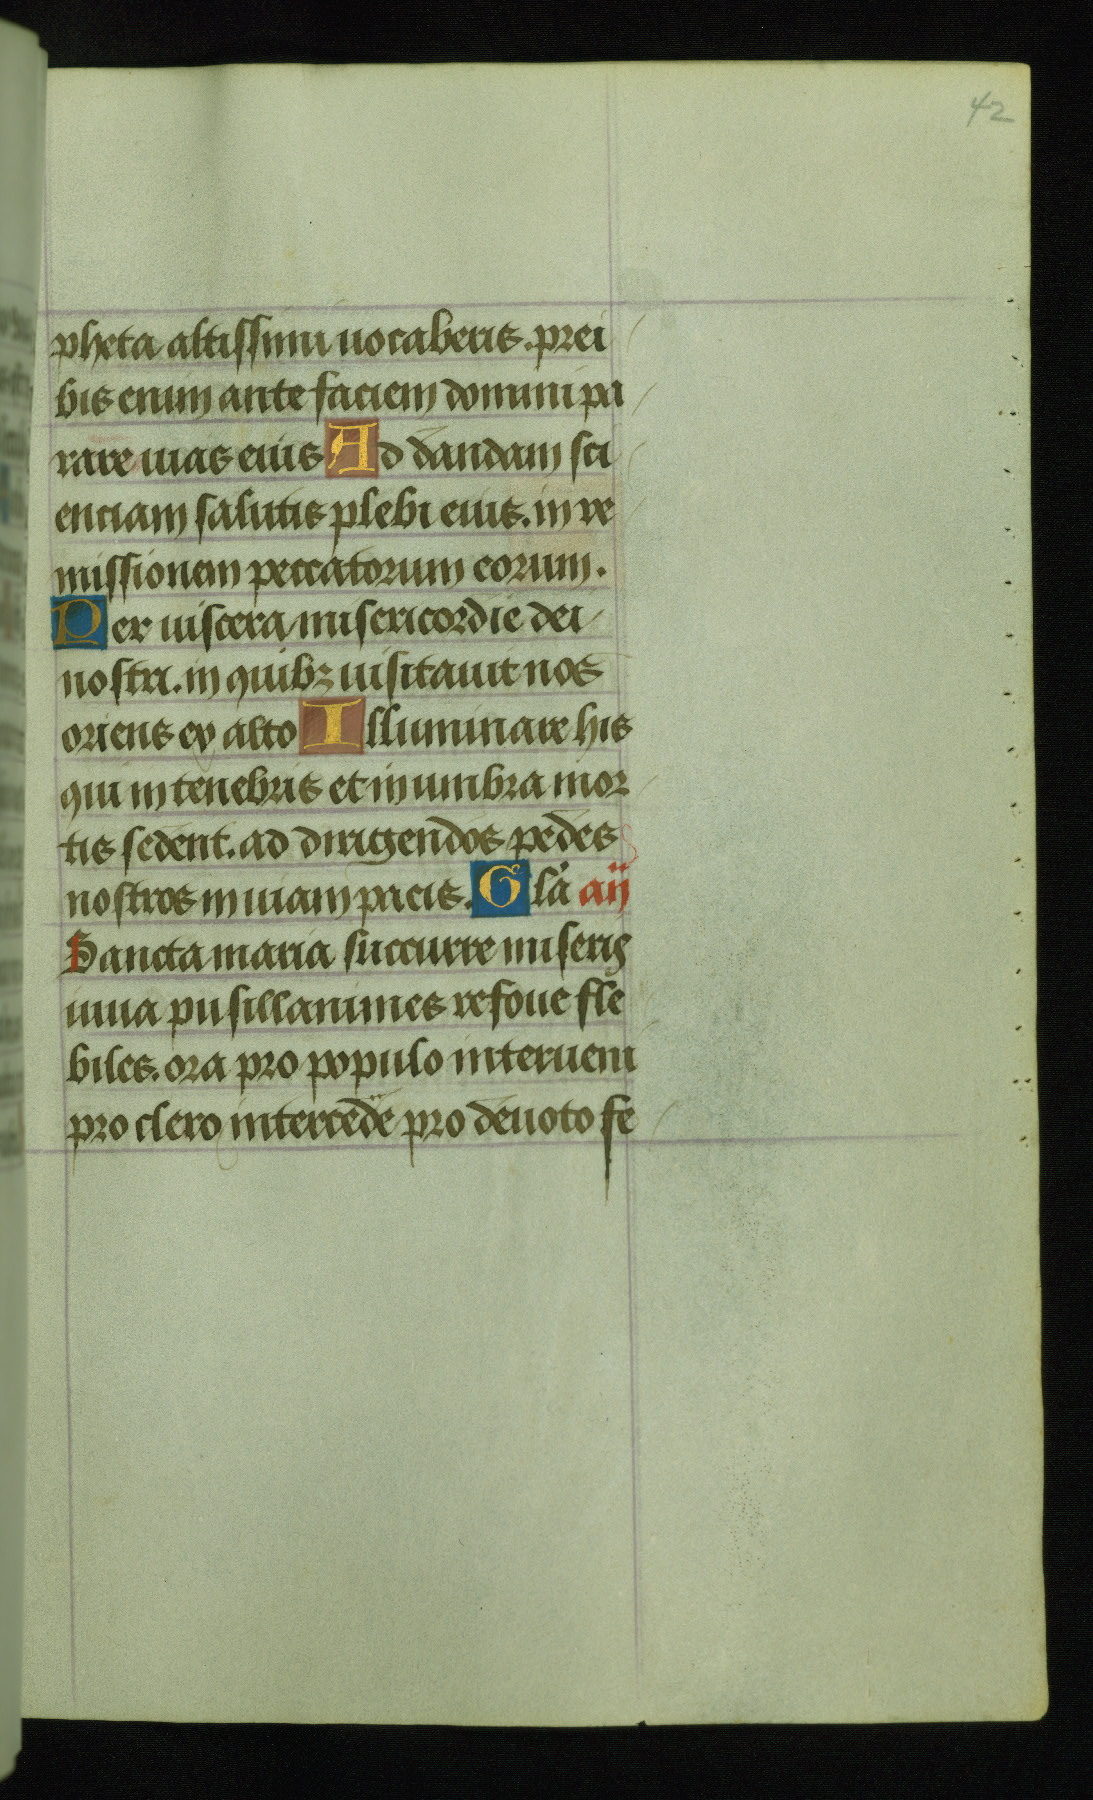 42
pheta altissimi uocaberis. prei
bis enim ante faciem domini pa
rare uias eius Ad dandam sci
enciam salutis plebi eius. in re
missionem peccatorum eorum.
Per uiscera misericordie dei
nostri. in quibꝫ uisitauit nos
oriens ex alto Illuminare his
qui in tenebris et in umbra mor
tis sedent. ad dirigendos pedes
nostros in uiam pacis. Gla añ
Sancta maria succurre miseris
iuua pusillanimes refoue fle
biles. ora pro populo interueni
pro clero intercede pro deuoto fe